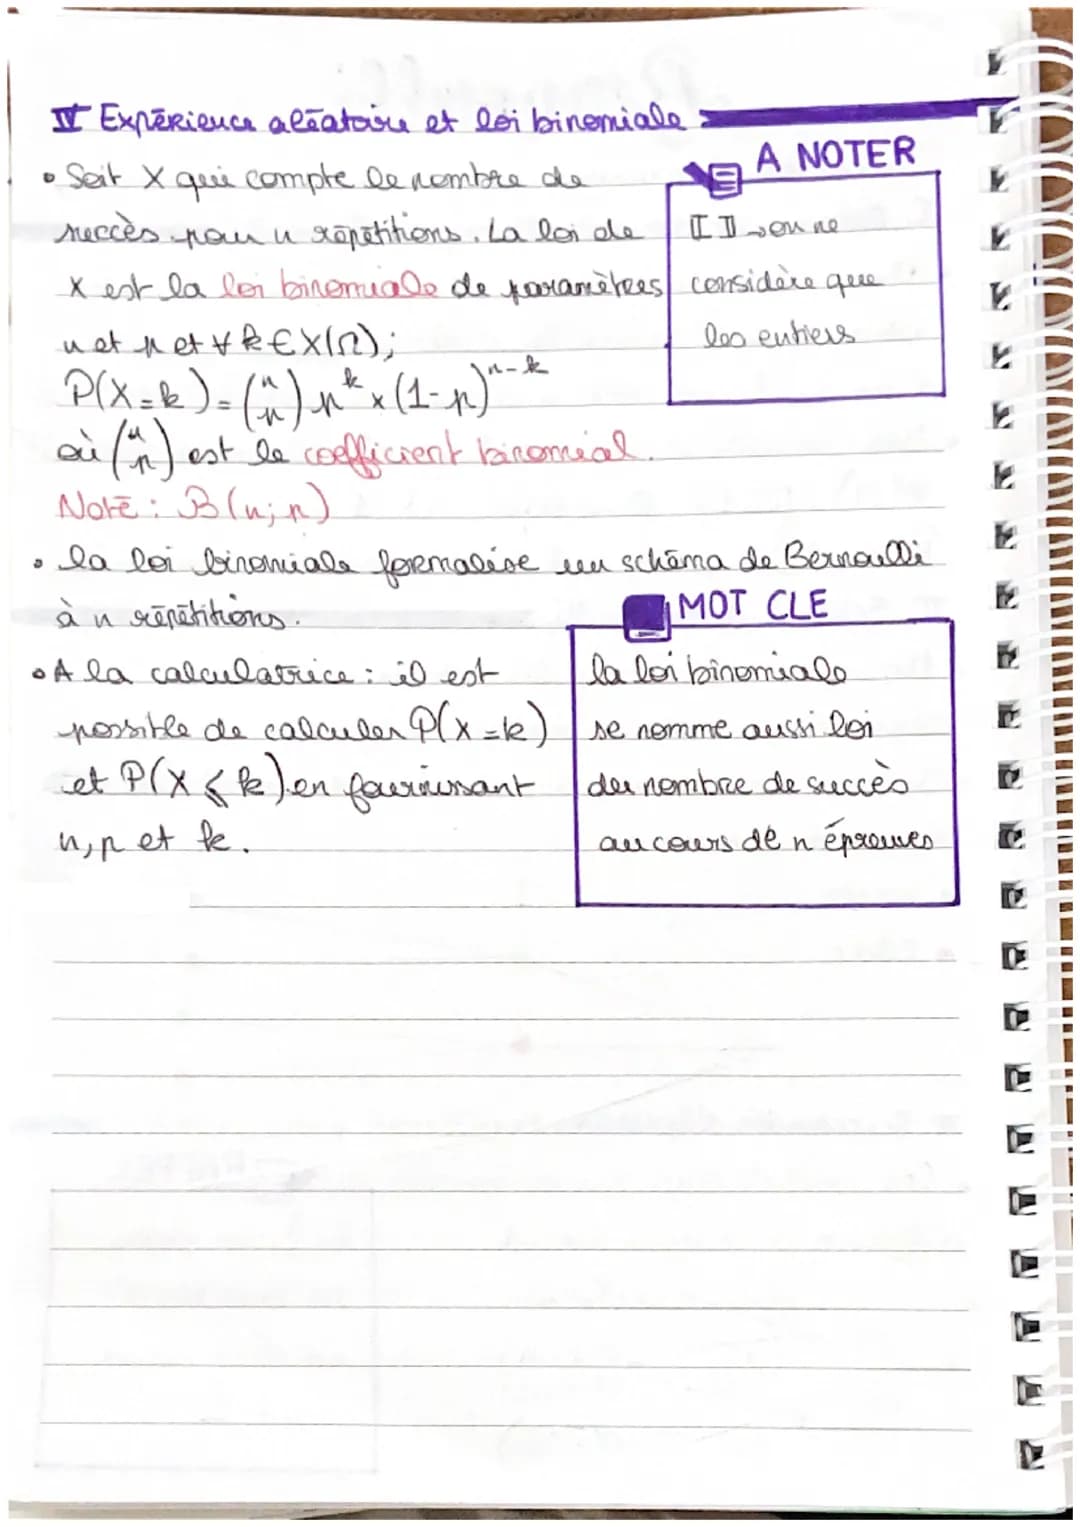 IV Expérience aléatoire et loi binomiale
• Soit X qui compte le nombre de
succès pour n répétitions. La loi de
X est la loi binomiale de paramètres
n et p et ∀ k ∈ X(Ω);
P(X=k) = (n p) p^k × (1-p)^n-k
où (n p) est le coefficient binomial.
Noté : B(n; p)
A NOTER
⟦ ⟧ → on ne
considère que
les entiers
• la loi binomiale formalise un schéma de Bernoulli
à n répétitions.
• A la calculatrice : il est
possible de calculer P(X=k)
et P(X ⩽ k) en fournissant
n, p et k.
MOT CLE
la loi binomiale
se nomme aussi loi
du nombre de succès
au cours de n épreuves